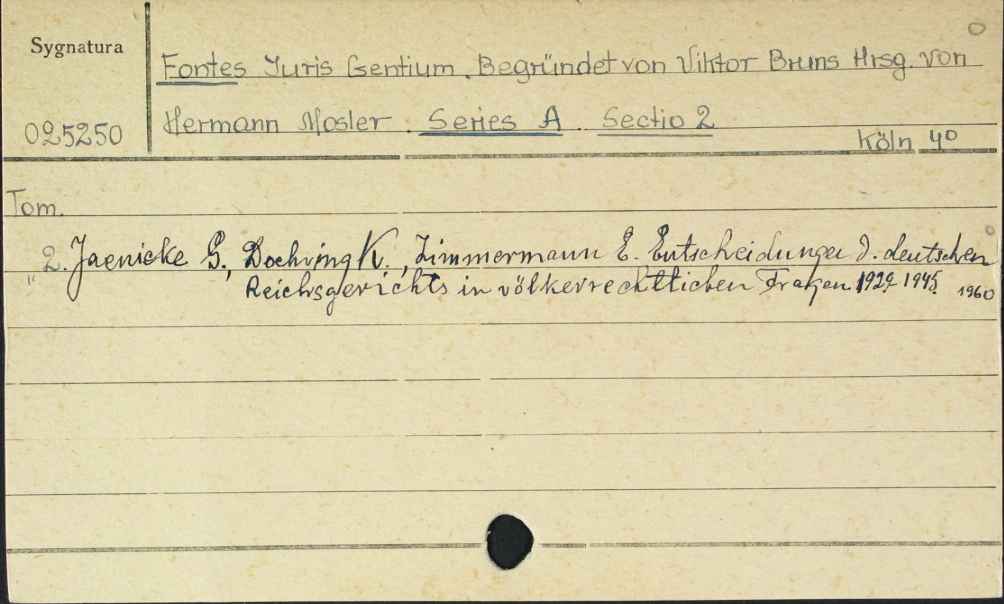 Sygnatura
Fontes Juris Gentium. Begründet von Viktor Bruns Hrsg. von
025250
Hermann Mosler. Series A. Sectio 2
Köln 4°
Tom.
2. Jaenicke G., Doehring K., Zimmermann E. Entscheidungen d. deutschen
Reichsgerichts in völkerrechtlichen Fragen 1929 1945 1960